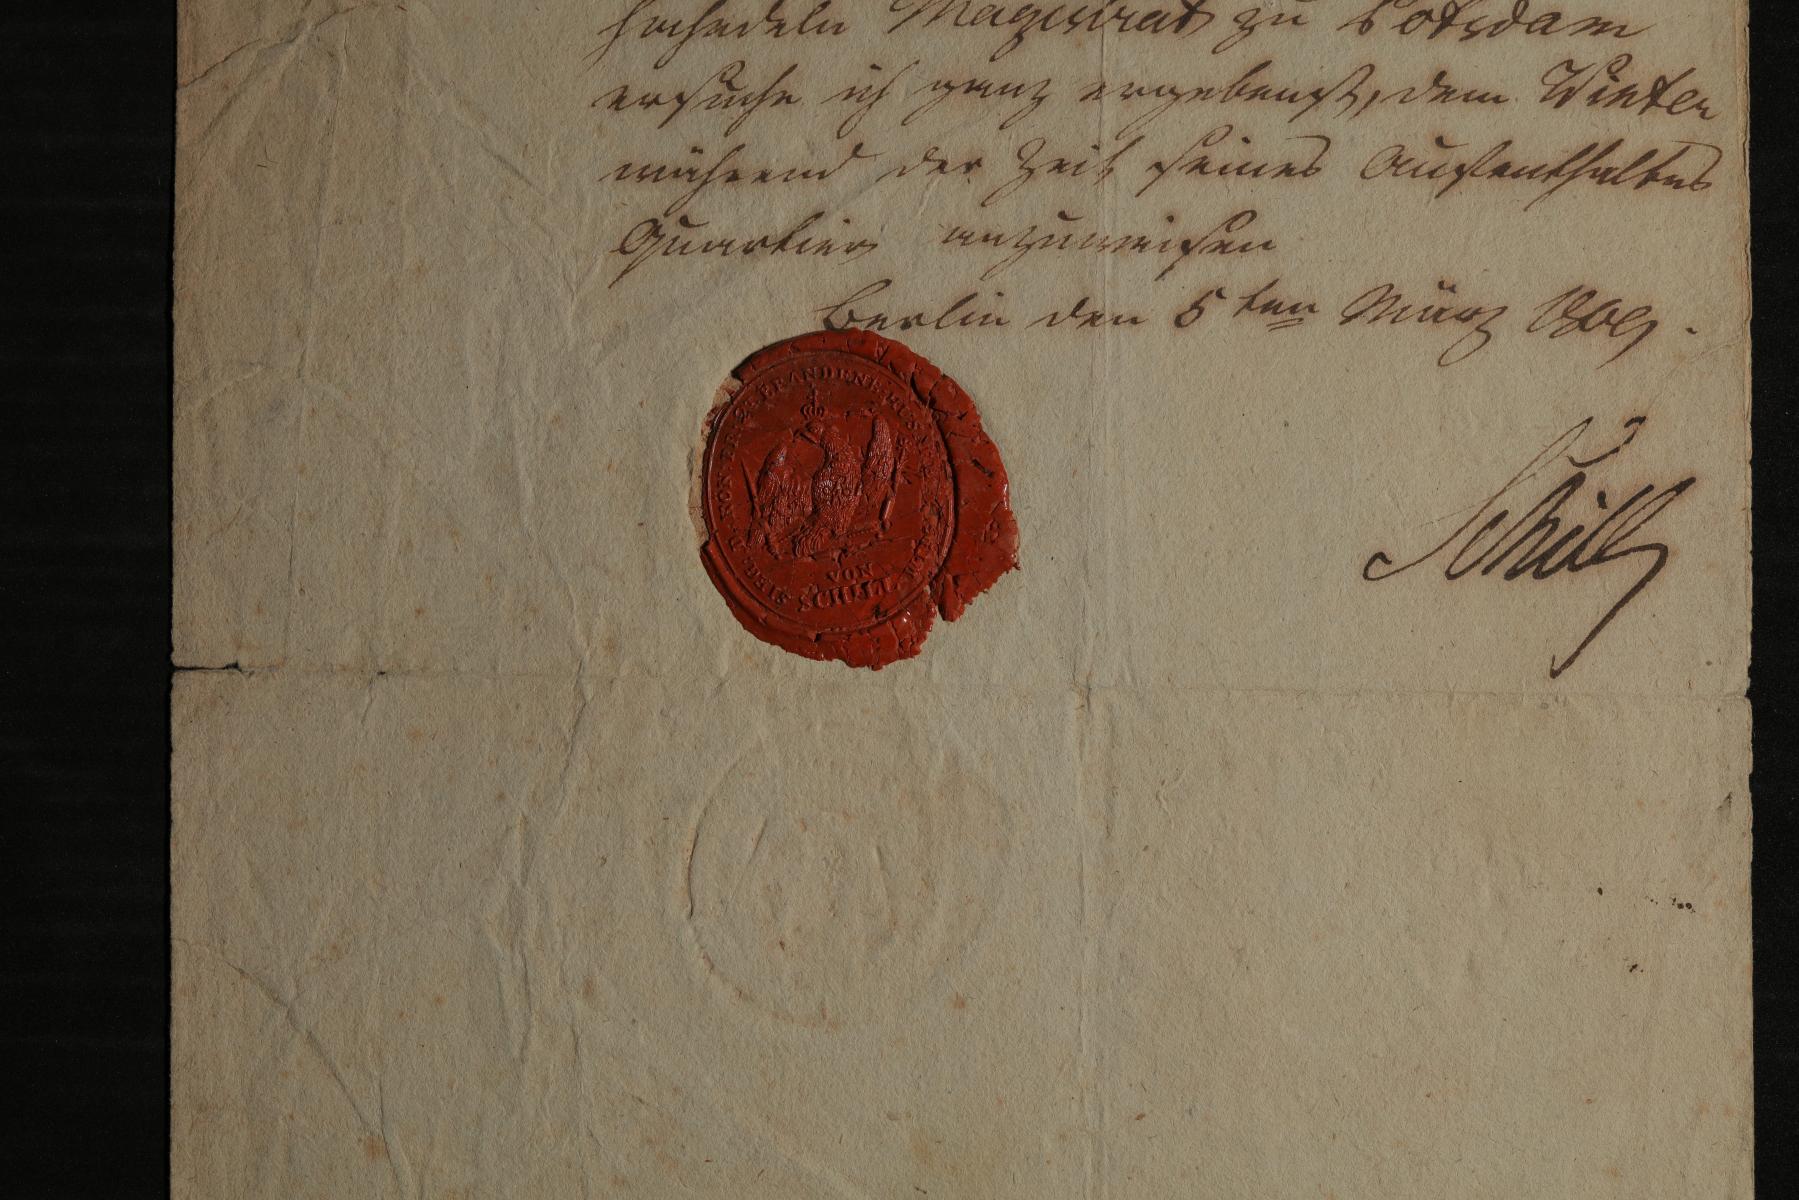 hochedeln Magistrat zu Potsdam
ersuche ich ganz ergebenst, dem Winter
während der Zeit seines Aufenthaltes
Quartier anzuweisen
Berlin den 5ten März 1809.
Schill
BRANDENB. HUSAR
VON
SCHILL